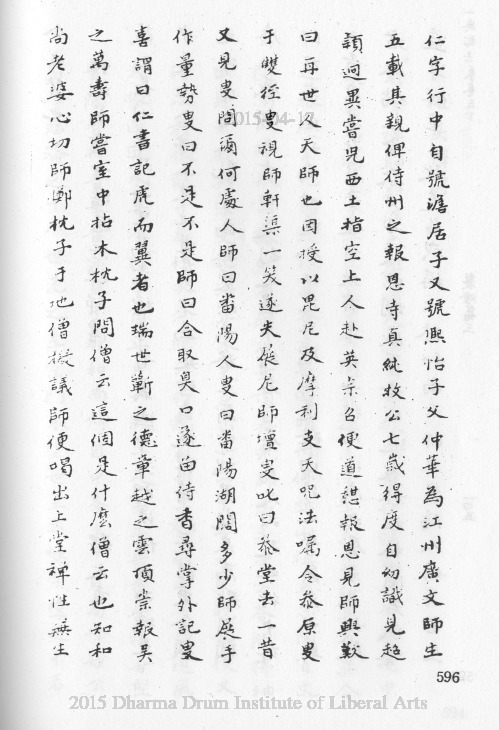 仁字行中自號澹居子又號熙怡子父仲華為江州廣文師生
五載其親俾侍州之報恩寺真純牧公七歲得度自幼識見超
穎迥異嘗見西土指空上人赴英宗召便道憇報恩見師興歎
曰再世人天師也因授以毘尼及摩利支天呪法囑令叅原叟
于雙徑叟視師軒渠一笑遂夫展尼師壇叟叱曰叅堂去一昔
又見叟問湏何處人師曰畨陽人叟曰畨陽湖闊多少師展手
作量勢叟曰不是不是師曰合取臭口遂畱侍香尋掌外記叟
喜謂曰仁書記虎而翼者也瑞世蘄之德章越之雲頂崇報吳
之萬壽師嘗室中拈木枕子問僧云這個是什麼僧云也知和
尚老婆心切師擲枕子于地僧擬議師便喝出上堂禅性無生
596
2015-04-17
2015 Dharma Drum Institute of Liberal Arts